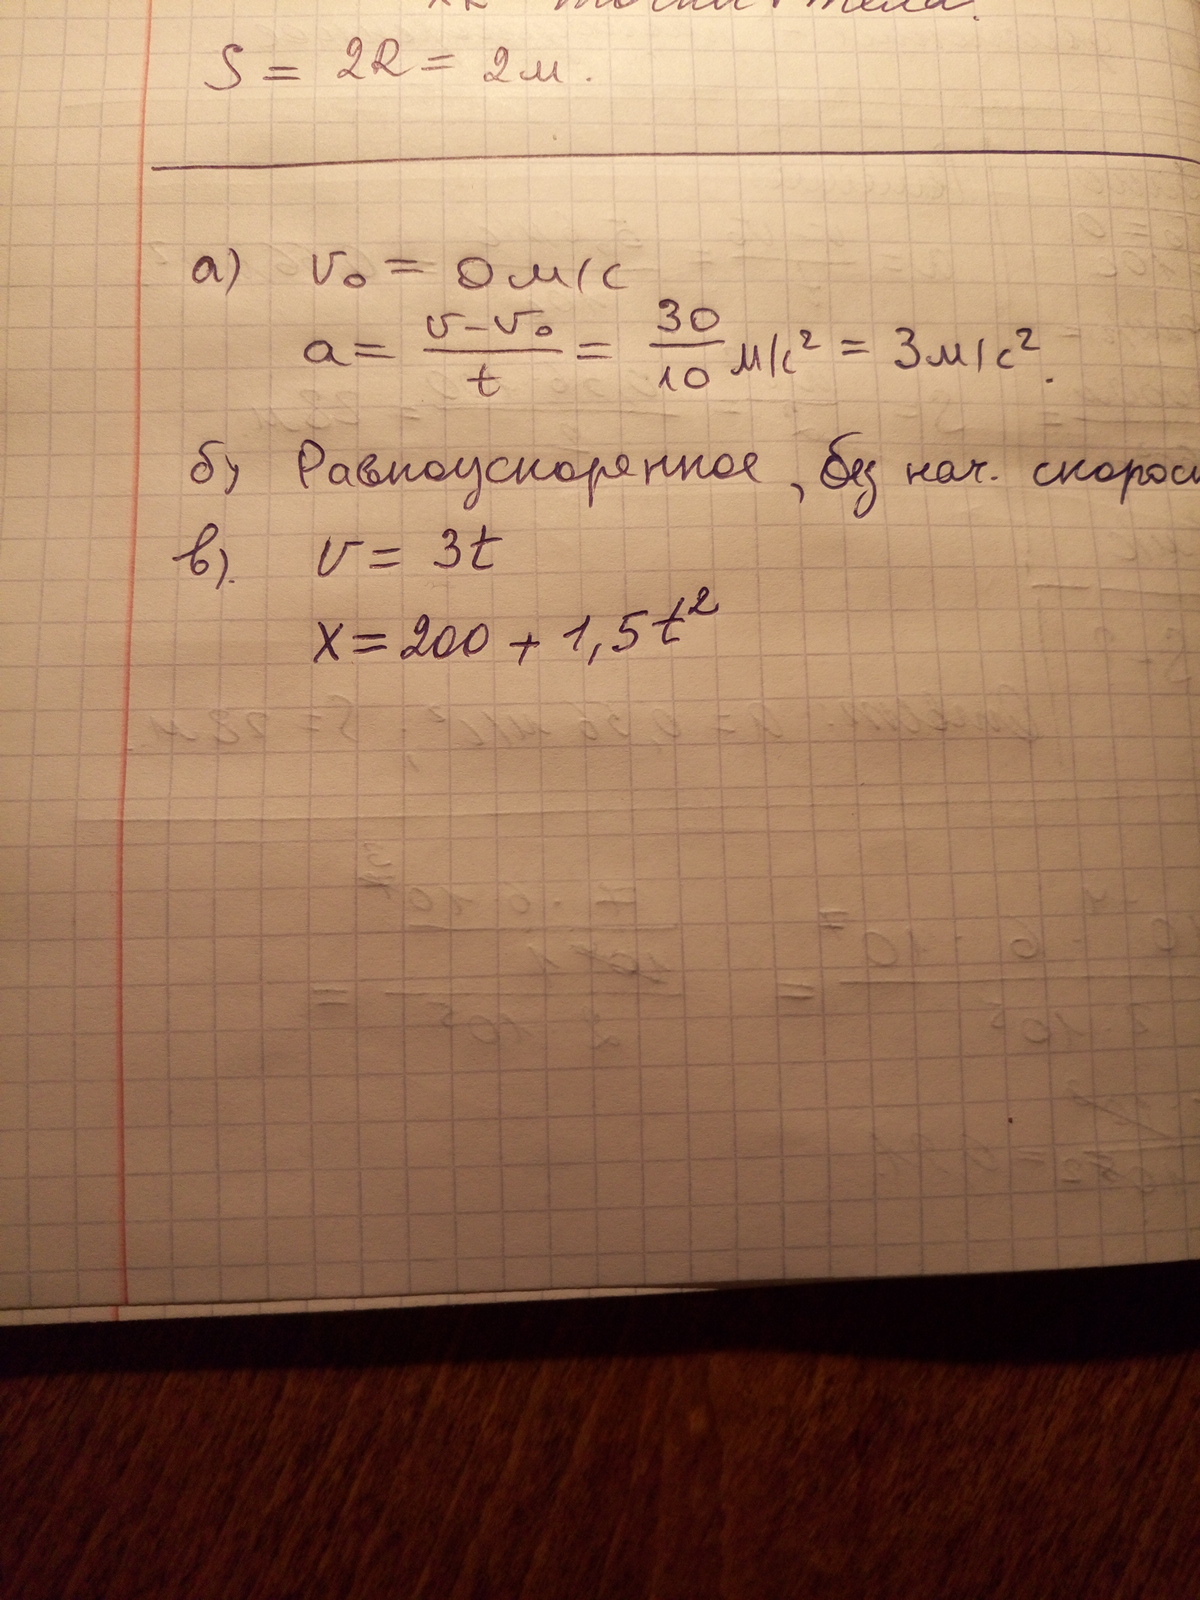 точки тела.
S = 2R = 2м.
а) v₀ = 0 м/с
a = (v - v₀)/t = 30/10 м/с² = 3 м/с².
б) Равноускоренное, без нач. скорос
в). v = 3t
x = 200 + 1,5t²